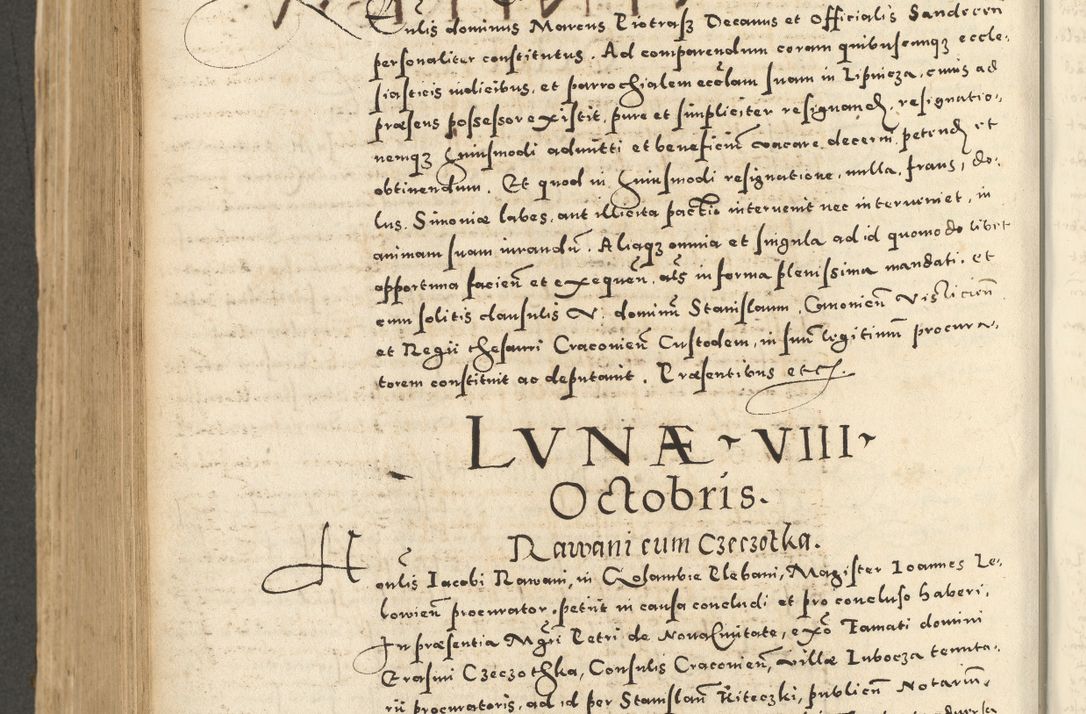 nlis dominus Marcus Piotrasz Decanus et Officialis Sandecen
personaliter constitutus. Ad comparendum coram quibuscunqz eccle-
siasticis iudicibus, et parrochialem ecclam suam in Lipnicza, cuius ad
præsens possessor existit, pure et simpliciter resignand, resignatio-
nemqz huiusmodi admitti et beneficiū vacare decerni petend et
obtinendum. Et quod in huiusmodi resignatione, nulla, fraus, do-
lus, Simoniæ labes, aut illicita pactio intervenit nec interveniet, in
animam suam iurandū. Aliaqz omnia et singula ad id quomodolibet
opportuna facien̄ et exequen̄, als in forma plenissima mandati, et
cum solitis clausulis V. dominū Stanislaum, Canonicū Visliciēn
et Regii thesauri Cracoviēn Custodem, in suū legitimū procura-
torem constituit ac deputavit. Præsentibus etc.
LVNÆ VIII
Octobris.
Rawani cum Czeczotka.
Honlis Iacobi Rawani, in Plebani, Magister Ioannes Le-
lowien̄ procurator, petiit in causa concludi et pro concluso haberi,
In præsentia Mgri Petri de Novacivitate, ex͞o Famati domini
Erasmi Czeczothka, Consulis Cracovien̄, villæ Lubocza tenuta-
rii procuratoris, ad id per Stanislaū Riteczki, publicū Notariū,